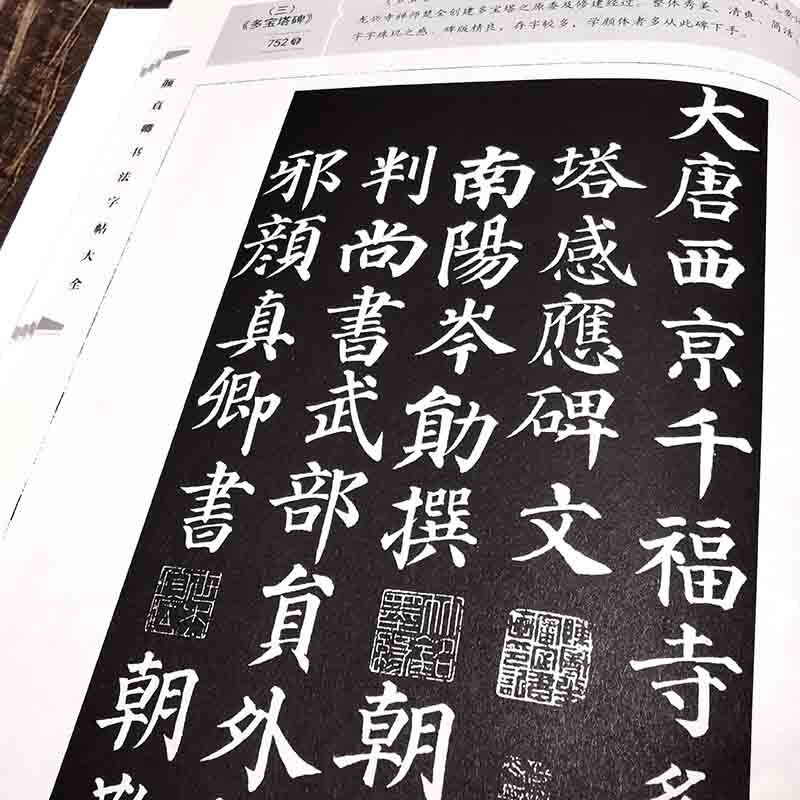 （三）
《多宝塔碑》
752
龙兴寺禅师楚金创建多宝塔之原委及修建经过。整体秀美、清爽、简洁
字字珠玑之感。碑版精良，存字较多，学颜体者多从此碑下手。
颜真卿书法字帖大全
大唐西亰千福寺多
塔感應碑文
南陽岑勛撰 朝
判尚書武部貟外
邪顏真卿書 朝